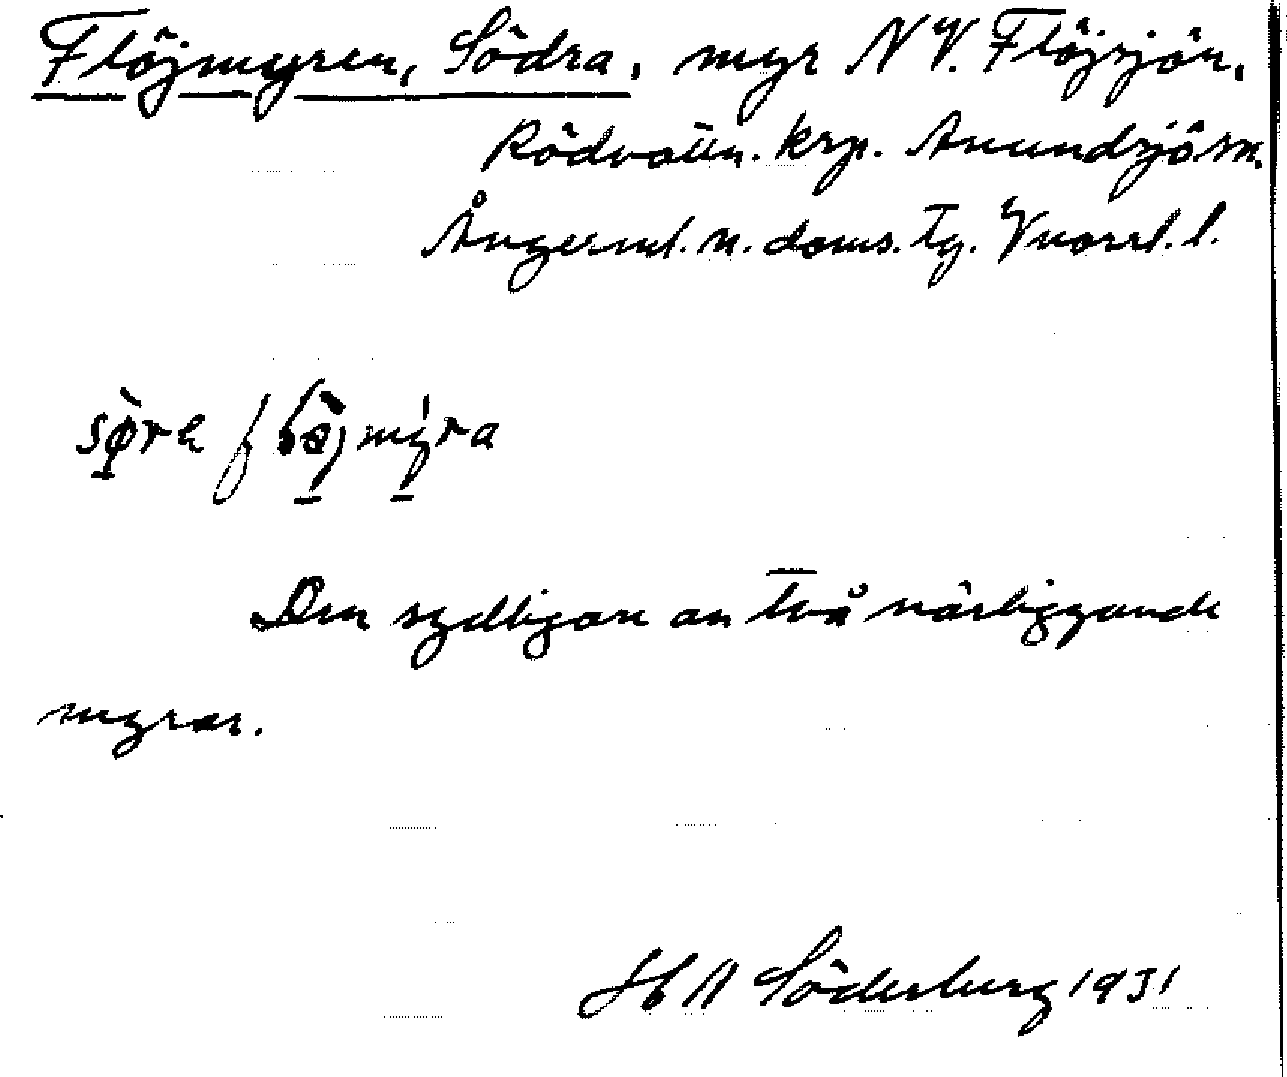 Flöjmyren, Södra, myr NV. Flöjsjön,
Rödvattn. krp. Anundsjö sn.
Ångerml. n. doms. tg. Vnorrl. l.
Den sydligare av två närliggande
myrar.
H N Söderberg 1931